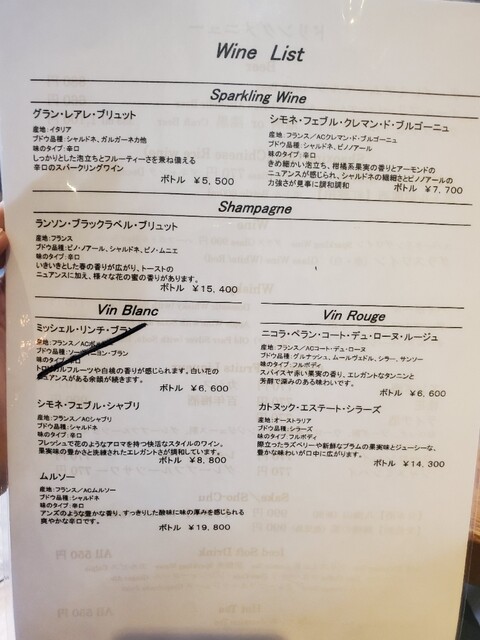 Wine List
Sparkling Wine
グラン・レアレ・ブリュット
産地：イタリア
ブドウ品種：シャルドネ、ガルガーネカ他
味のタイプ：辛口
しっかりとした泡立ちとフルーティーさを兼ね備える
辛口のスパークリングワイン
ボトル ￥5,500
シモネ・フェブル・クレマン・ド・ブルゴーニュ
産地：フランス/ACクレマン・ド・ブルゴーニュ
ブドウ品種：シャルドネ、ピノノアール
味のタイプ：辛口
きめ細かい泡立ち、柑橘系果実の香りとアーモンドの
ニュアンスが感じられ、シャルドネの繊細さとピノノアールの
力強さが見事に調和調和
ボトル ￥7,700
Shampagne
ランソン・ブラックラベル・ブリュット
産地：フランス
ブドウ品種：ピノ・ノアール、シャルドネ、ピノ・ムニエ
味のタイプ：辛口
いきいきとした春の香りが広がり、トーストの
ニュアンスに加え、様々な花の蜜の香りがあります。
ボトル ￥15,400
Vin Blanc
ミッシェル・リンチ・ブラン
産地：フランス/AC
ブドウ品種：ソーヴィニヨン・ブラン
味のタイプ：辛口
トロピカルフルーツや白桃の香りが感じられます。白い花の
ニュアンスがある余韻が続きます。
ボトル ￥6,600
シモネ・フェブル・シャブリ
産地：フランス/ACシャブリ
ブドウ品種：シャルドネ
味のタイプ：辛口
フレッシュで花のようなアロマを持つ快活なスタイルのワイン。
果実味の豊かさと洗練されたエレガントさが調和しています。
ボトル ￥8,800
ムルソー
産地：フランス/ACムルソー
ブドウ品種：シャルドネ
味のタイプ：辛口
アンズのような豊かな香り、すっきりした酸味に味の厚みを感じられる
爽やかな辛口です。
ボトル ￥19,800
Vin Rouge
ニコラ・ペラン・コート・デュ・ローヌ・ルージュ
産地：フランス/ACコート・デュ・ローヌ
ブドウ品種：グルナッシュ、ムールヴェドル、シラー、サンソー
味のタイプ：フルボディ
スパイスや赤い果実の香り、エレガントなタンニンと
芳醇で深みのある味わいです。
ボトル ￥6,600
カトヌック・エステート・シラーズ
産地：オーストラリア
ブドウ品種：シラーズ
味のタイプ：フルボディ
際立ったラズベリーや新鮮なプラムの果実味とジューシーな、
豊かな味わいが口中に広がります。
ボトル ￥14,300